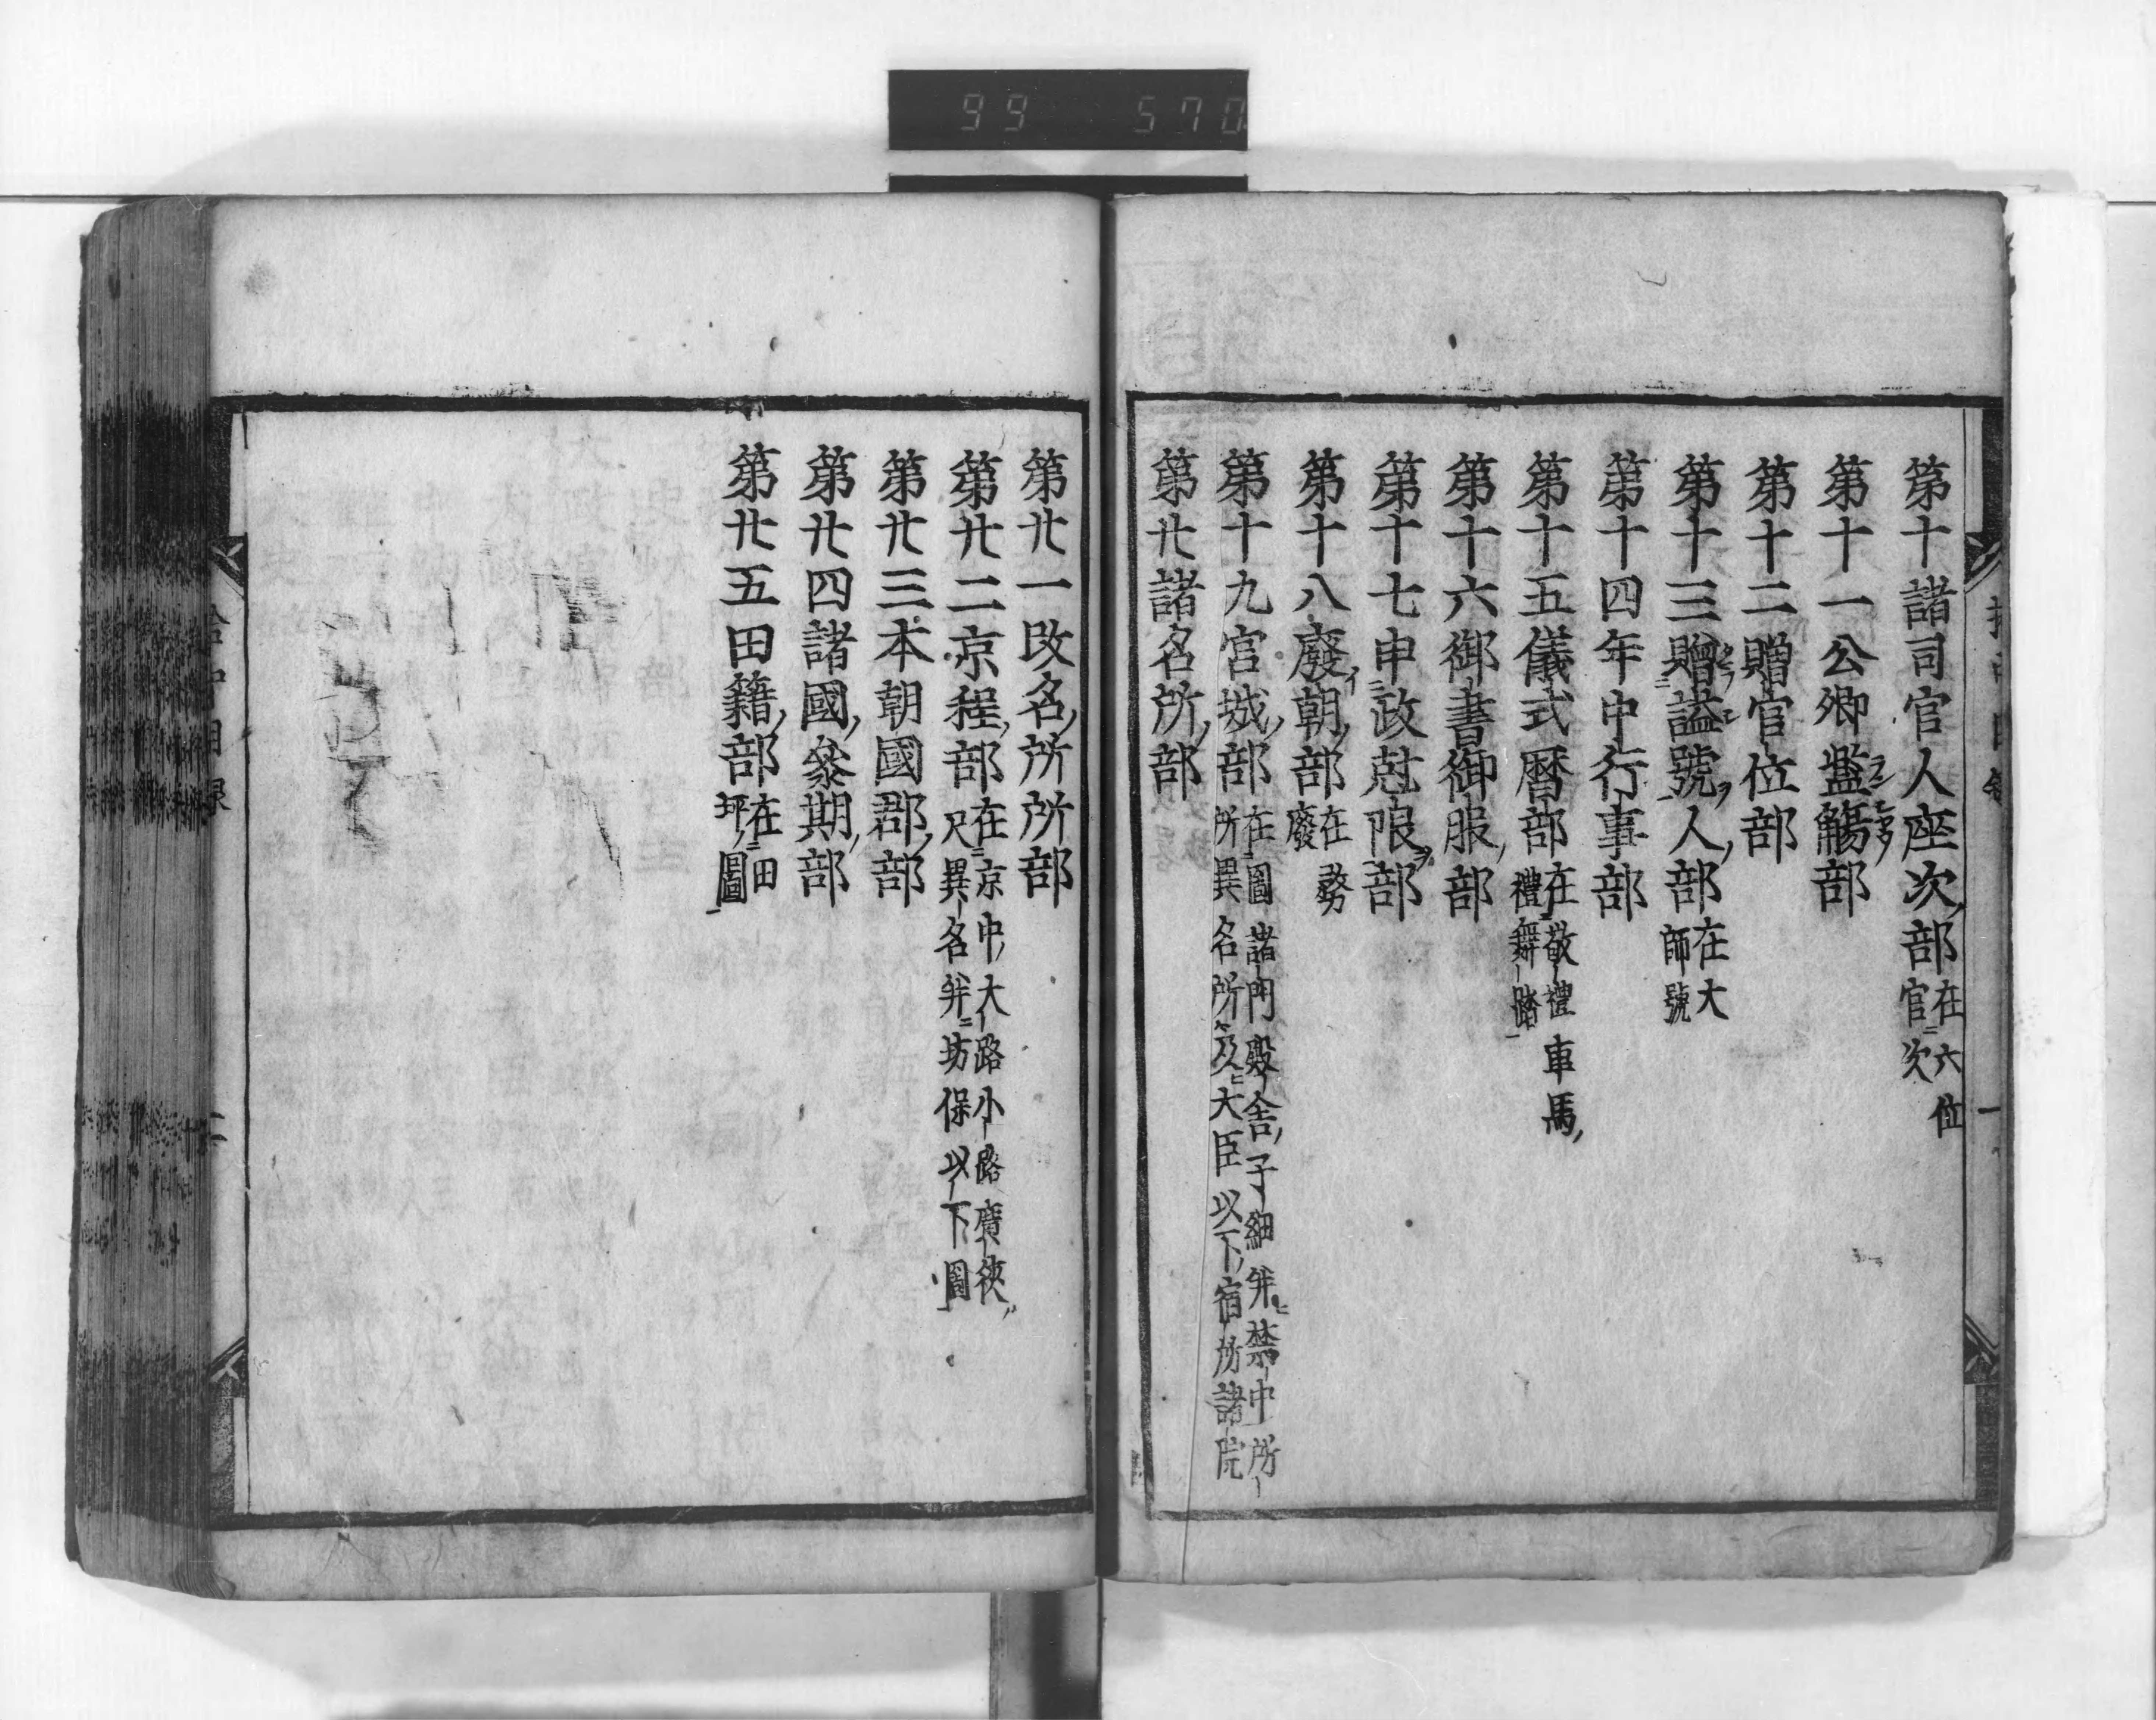 99 570
第十諸司官人座次部在六位官次
第十一公卿濫觴部
第十二贈官位部
第十三贈謚號人部在大師號
第十四年中行事部
第十五儀式暦部在敬禮車馬禮舞踏
第十六御書御服部
第十七申政愆限部
第十八廢朝部在廢務
第十九宮城部在圖諸門殿舎子細并禁中所所異名所及大臣以下宿所諸院
第廿諸名所部
第廿一改名所所部
第廿二京程部在京中大路小路廣狹尺異名并坊保以下圖
第廿三本朝國郡部
第廿四諸國叅期部
第廿五田籍部在田坪圖